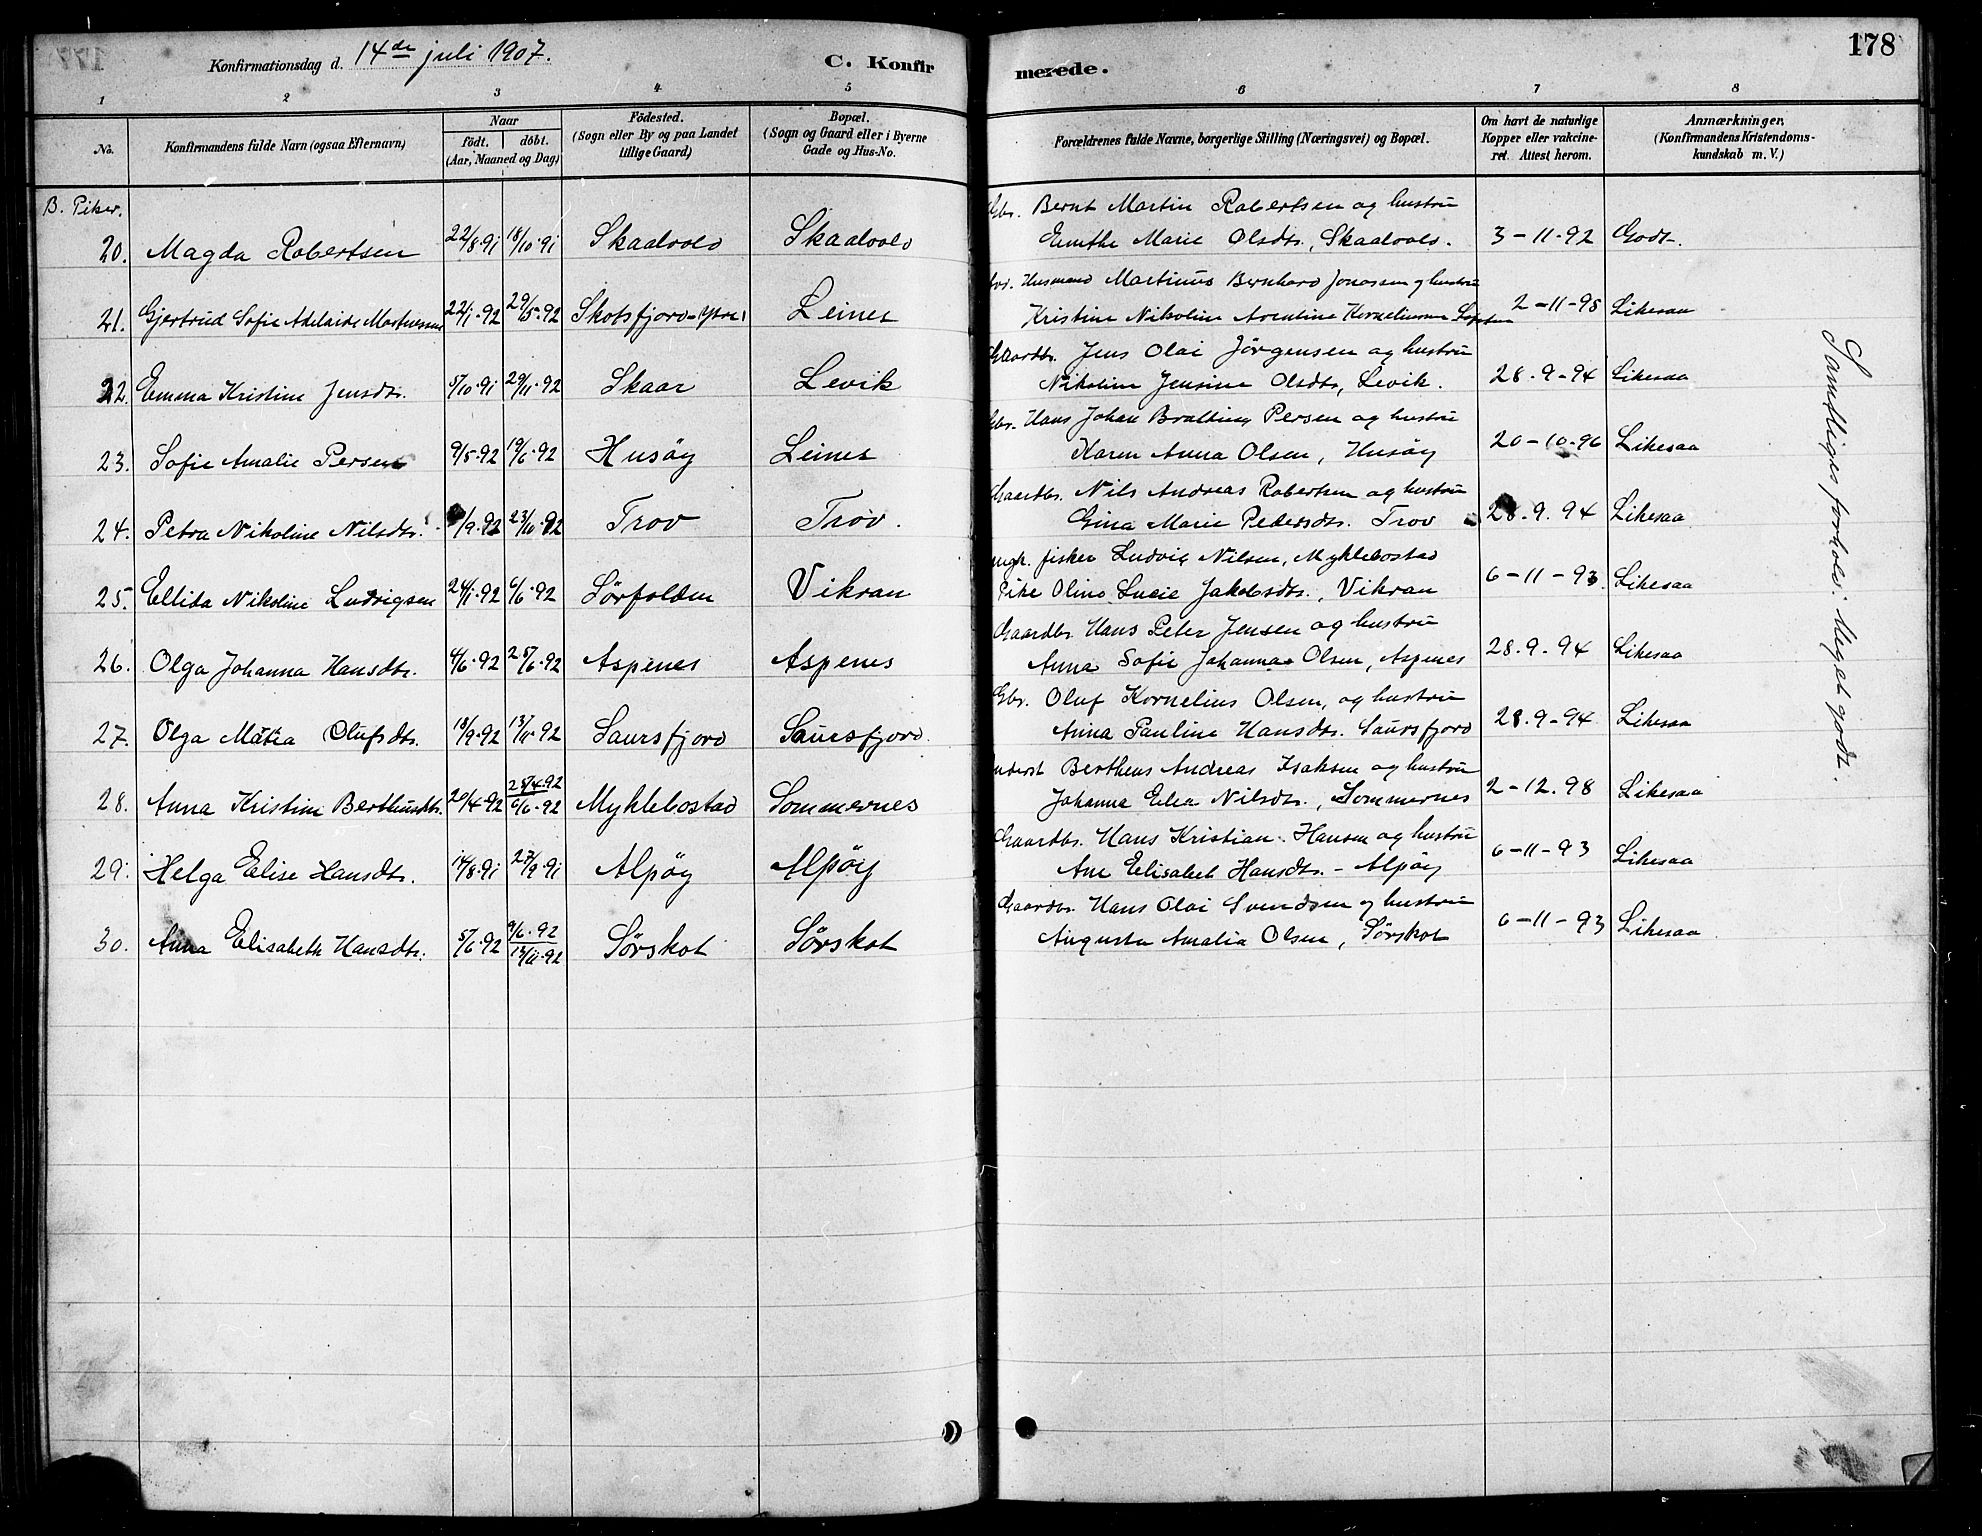 178
Konfirmationsdag d. 14de juli 1907.
C. Konfirmerede.
1 2 3 4 5 6 7 8
No.
Konfirmandens fulde Navn (ogsaa Efternavn)
Naar
født. døbt.
(Aar, Maaned og Dag)
Födested.
(Sogn eller By og paa Landet
tillige Gaard)
Bopæl.
(Sogn og Gaard eller i Byerne
Gade og Hus-No.
Forældrenes fulde Navne, borgerlige Stilling (Næringsvei) og Bopæl.
Om havt de naturlige
Kopper eller vakcine-
ret. Attest herom.
Anmærkninger.
(Konfirmandens Kristendoms-
kundskab m. V.)
B. Piker.
Gbr. Bernt Martin Robertsen og hustru
20. Magda Robertsen 22/8·91 18/10·91 Skaalvold Skaalvold Marie Olsdtr., Skaalvold. 3-11-92 Godt.
Husmand Martinus Bernhard Jonassen og hustru
21. Gjertrud Sofie Adelaide 22/1·92 29/5·92 Skotsfjord-ytre Leines Kristine Nikoline Arentine 2-11-98 Likesaa
Gaardbr. Jens Olai Jörgensen og hustru
22. Emma Kristine Jensdtr. 5/10·91 29/11·92 Skaar Levik Nikoline Jensine Olsdtr., Levik. 28.9-94 Likesaa
Gbr. Hans Johan Persen og hustru
23. Sofie Amalie Persen 9/5·92 19/6·92 Husöy Leines Karen Anna Olsen, Husöy 20-10-96 Likesaa
Gaardbr. Nils Andreas Robertsen og hustru
24. Petra Nikoline Nilsdtr. /9·92 23/10·92 Trov Trov. Gina Marie Pedersdtr. Trov 28.9.94 Likesaa
ungk. fisker Ludvig Nilsen, Myklebostad
25. Ellida Nikoline Ludvigsen 24/1·92 6/6·92 Sörfolden Vikran Pike Oline Lucie Jakobsdtr., Vikran 6-11-93 Likesaa
Gaardbr. Hans Peter Jensen og hustru
26. Olga Johanna Hansdtr. 4/6·92 25/6·92 Aspenes Aspenes Anna Sofie Johanna Olsen, Aspenes 28.9-94 Likesaa
Gbr. Oluf Kornelius Olsen, og hustru
27. Olga Matia Olufsdtr. 18/9·92 13/11·92 Saursfjord Saursfjord. Anna Pauline Hansdtr. Saursfjord 28.9-94 Likesaa
Berthens Andreas Isaksen og hustru
28. Anna Kristine 20/4·92 25/4·92 6/6·92 Myklebostad Sommernes Johanna Elea Nilsdtr., Sommernes 2-12.98 Likesaa
Gaardbr. Hans Kristian Hansen og hustru
29. Helga Elise Hansdtr. 14/8·91 27/9·91 Alpöy Alpöy Ane Elisabet Hansdtr. - Alpöy 6-11-93 Likesaa
Gaardbr. Hans Olai Svendsen og hustru
30. Anna Elisabeth Hansdtr. 5/6·92 9/6·92 13/11·92 Sörskot Sörskot Augusta Amalia Olsen, Sörskot 6-11-93 Likesaa
Samtliges forhold: Meget godt.